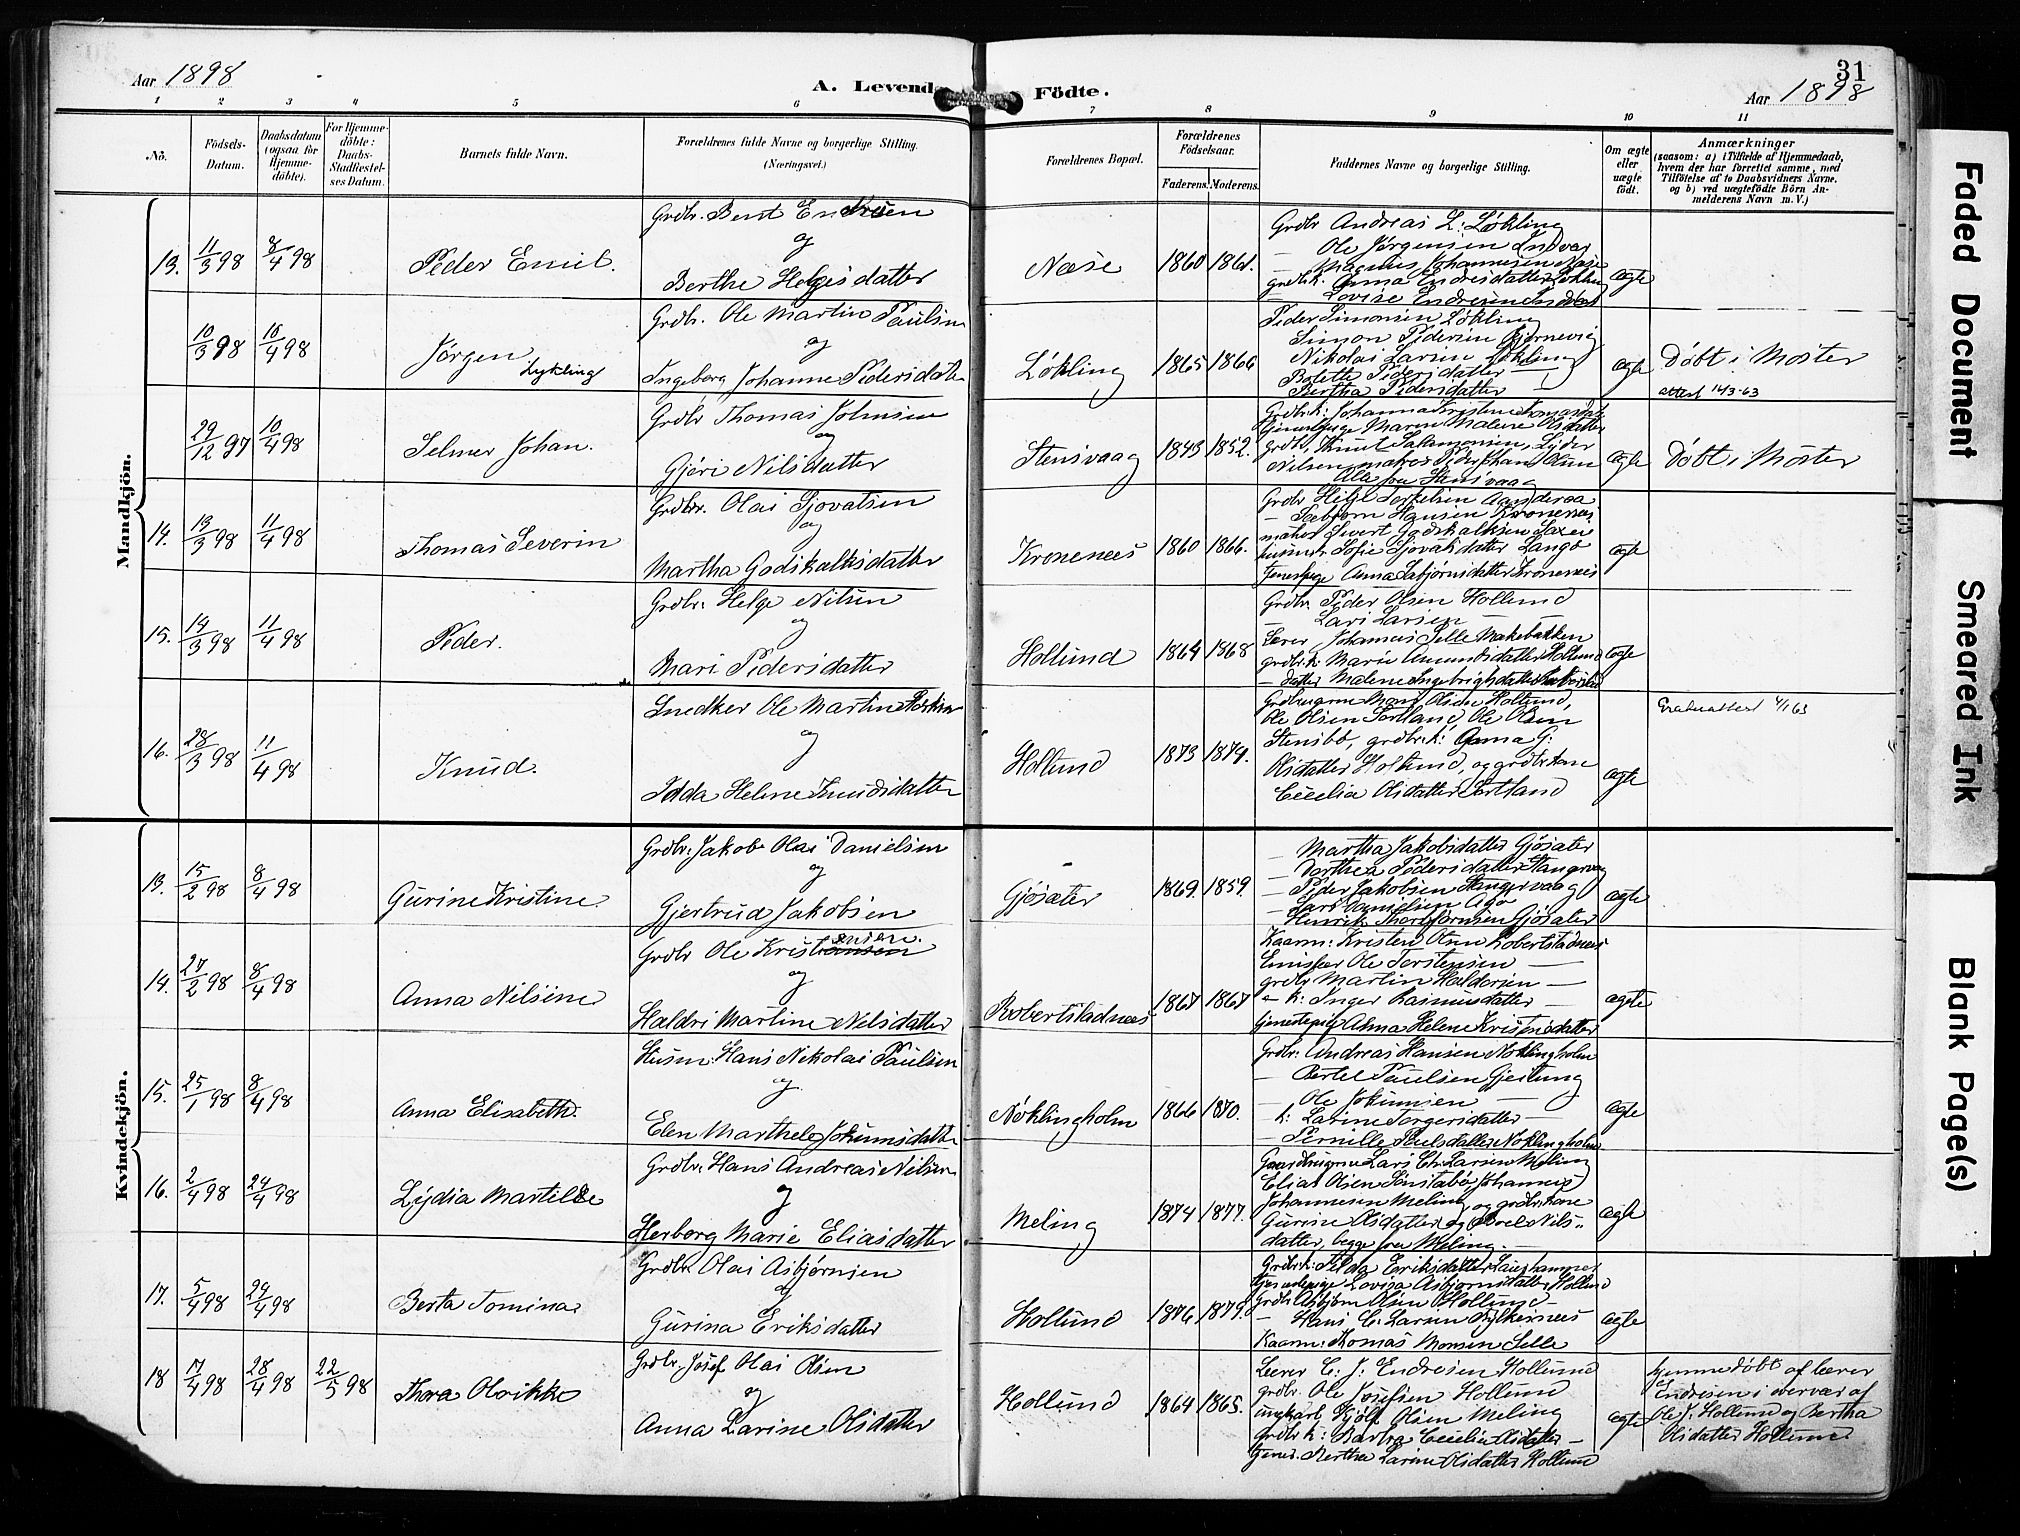 Aar 1898
A. Levende Födte.
31
Aar 1898
1 2 3 4 5 6 7 8 9 10 11
No.
Födsels-Datum.
Daabsdatum (ogsaa for Hjemme-döbte).
For Hjemme-döbte: Daabs-Stadfæstel-ses Datum.
Barnets fulde Navn.
Forældrenes fulde Navne og borgerlige Stilling.
(Næringsvei.)
Forældrenes Bopæl.
Forældrenes Födselsaar.
Faderens. Moderens.
Faddernes Navne og borgerlige Stilling.
Om ægte eller uægte födt.
Anmærkninger
(saasom: a) i Tilfælde af Hjemmedaab,
hvem der har forrettet samme, med
Tilföielse af to Daabsvidners Navne,
og b) ved uægtefödte Börn An-
melderens Navn m. V.)
Mandkjön.
13. 11/3 98 8/4 98 Peder Emil.
Grdbr. Bent Endresen
og
Berthe Helgesdatter
Næse 1860 1861.
Grdbr Andreas L. Løkling
Ole Jørgensen Indvær
— Magnus Johannesen Næse
grdbrk. Anna Endresdatter Løkling
— Lovise Endresen Indvær
ægte
10/3 98 10/4 98 Jørgen Lykling
Grdbr. Ole Martin Paulsen
og
Ingeborg Johanne Pedersdatter
Løkling 1865 1866
Peder Simonsen Løkling
Simon Pedersen Bjørnevig
Nikolai Larsen Løkling
Bolette Pedersdatter —
Bertha Pedersdatter —
ægte
Døbt i Moster
attest 14/3-63
29/12 97 10/4 98 Selmer Johan.
Grdbr Thomas Johnsen
og
Gjøri Nilsdatter
Stensvaag 1843 1852.
Grdbrk: Johanna Kristine
Tjenestepige Maren Malene Olsdatter
grdbr. Knut Salamonsen, Peder
Nilsen,
Alle fra Stensvaag
ægte
Døbt i Moster
14. 13/3 98 11/4 98 Thomas Severin
Grdbr. Olai Sjovatsen
og
Martha Godskalksdatter
Kronenes 1860 1866.
Grdbr Helge Torkelsen Aanderaa
— Sæbjørn Hansen Kronenes
Sivert Godskalksen
Sofie Sjovatsdatter Langø
Tjenestpige Anna Sæbjørnsdatter Kronenes
ægte
15. 14/3 98 11/4 98 Peder.
Grdbr. Helge Nilsen
og
Mari Pedersdatter
Hollund 1864 1868
Grdbr. Peder Olsen Hollund
— Lars Larsen —
Lærer Johannes Selle Mækebakken
grdbr.k: Marie Amundsdatter Hollund
— datter Malene Ingebrigtsdatter
ægte
16. 28/3 98 11/4 98 Knud.
Snedker Ole Martin
og
Idda Helene Knudsdatter
Hollund 1873 1879.
Grdbrugerne Mons Olsen Hollund,
Ole Olsen Sortland, Ole Olsen
Stensbø, grdbr.k: Anna G:
Olsdatter Hollund, og grdbrkone
Cecelia Olsdatter Sortland
ægte
4/1 63
Kvindekjön.
13. 15/2 98 8/4 98 Gurine Kristine
Grdbr. Jakob Olai Danielsen
og
Gjertrud Jakobsen
Gjøsæter 1869. 1859.
— Martha Jakobsdatter Gjøsæter
— Dorthea Pedersdatter Stangervaag
— Peder Jakobsen Stangervaag
— Lars Danielsen Agø
Henrik Thorbjørnsen Gjøsæter
ægte
14. 27/2 98 8/4 98 Anna Nilsine
Grdbr Ole Kristensen
og
Haldri Martine Nilsdatter
Robertstadnes 1867 1867
Kaarm: Kristen Olsen Robertstadnes
Emissær Ole Torstensen —
grdbr Martin Haldorsen —
— k: Inger Rasmusdatter —
tjenestepige Alma Helene Kristensdatter
ægte
15. 25/1 98 8/4 98 Anna Elisabeth.
Husm: Hans Nikolai Paulsen
og
Elen Marthe Jokumsdatter
Nøklingholm 1866 1870.
Grdbr: Andreas Hansen Nøklingholm
— Bertel Paulsen Gjeitung
— Ole Jokumsen —
k. Larine Torgersdatter —
— Pernille Paulsdatter Nøklingholm
ægte
16. 2/4 98 24/4 98 Lydia Martilde
Grdbr. Hans Andreas Nilsen
og
Herborg Marie Eliasdatter
Meling 1874 1877.
Gaardbrugerne Lars Chr. Larsen Meling
Elias Olsen Sønstabø, Johannes
Johannesen Meling, og grdbrkone
Gurine Olsdatter og Nils-
datter, begge fra Meling.
ægte
17. 5/4 98 24/4 98 Berta Tomina
Grdbr. Olai Asbjørnsen
og
Gurina Eriksdatter
Hollund 1876 1879.
Grdbrk: Eriksdatter Laurhammer
tjenestepige Lovisa Asbjørnsdatter Hollund
Grdbr Asbjørn Olsen Hollund —
— Hans C. Larsen Fylkesnes
Kaarm: Thomas Monsen Selle
ægte
18 17/4 98 28/4 98 22/5 98 Thora Olvikka
Grdbr. Josef Olai Olsen
og
Anna Larine Olsdatter
Hollund 1864 1865.
Lærer C. J. Endresen Hollund
grdbr. Ole Josefsen Hollund
ungkarl Kjølf Olsen Meling
grdbr k: Bertha Cecilia Olsdatter —
Tjener. Bertha Larine Olsdatter Hollund
ægte
hjemmedøbt af lærer
Endresen i overvær af
Ole J. Hollund og Bertha
Olsdatter Hollund
Faded Document
Smeared Ink
Blank Page(s)